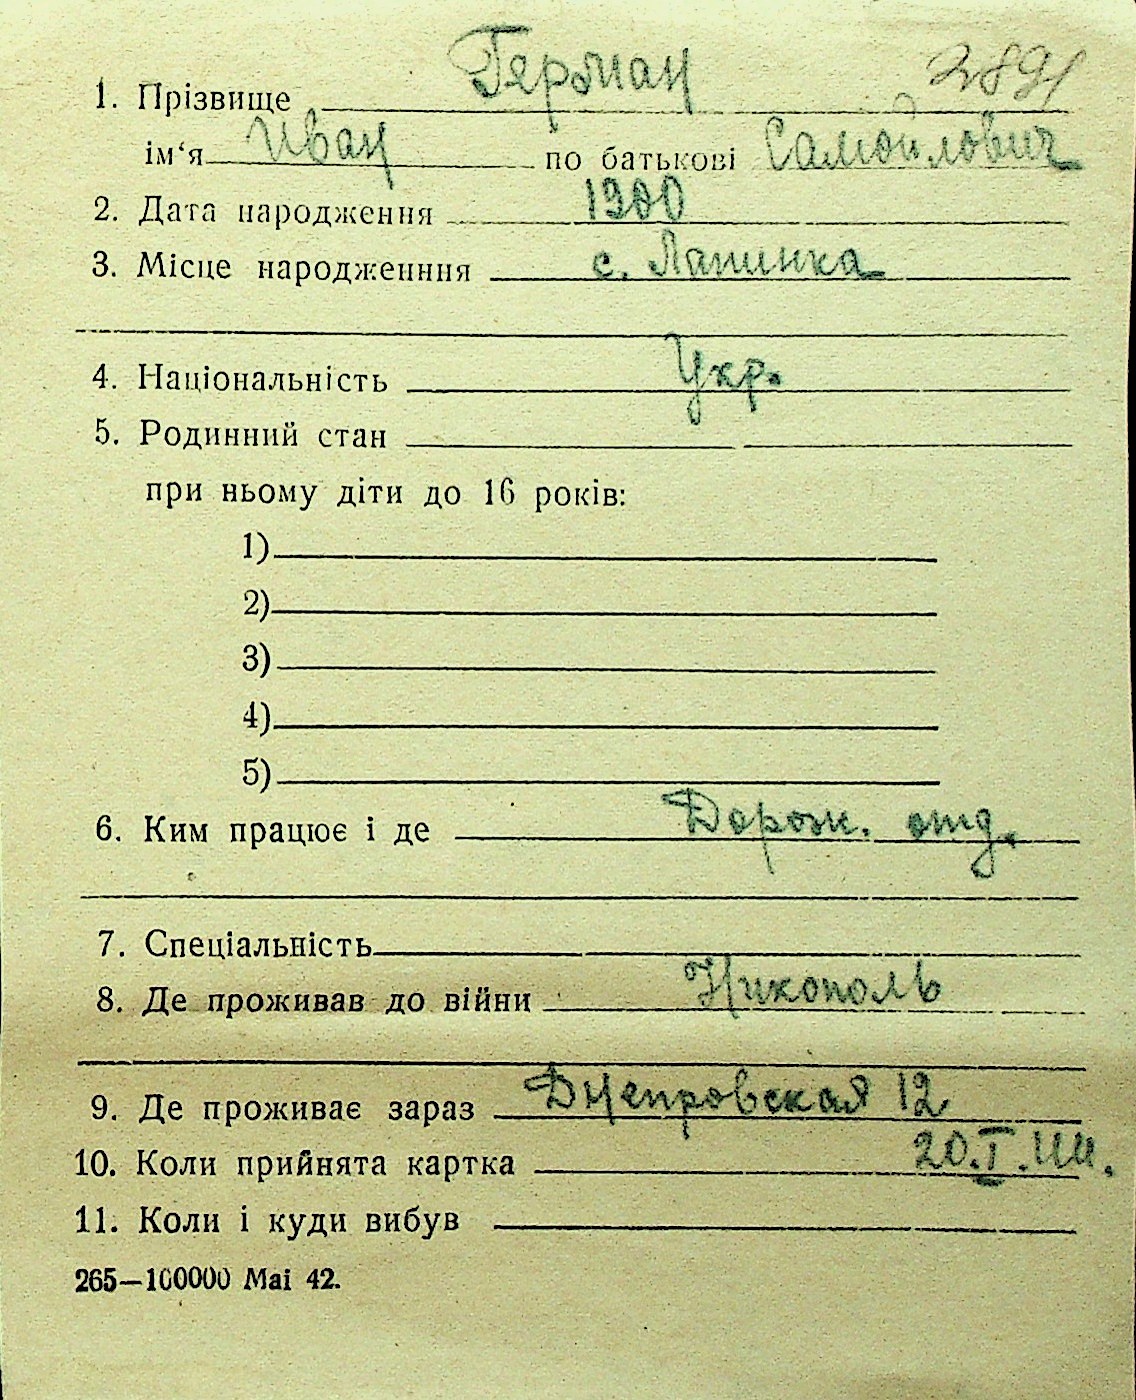 2891
1. Прізвище Герман
ім‘я Иван по батькові Самойлович
2. Дата народження 1900
3. Місце народженння с. Лапинка
4. Національність Укр.
5. Родинний стан
при ньому діти до 16 років:
1)
2)
3)
4)
5)
6. Ким працює і де Дорож. отд.
7. Спеціальність
8. Де проживав до війни Никополь
9. Де проживає зараз Днепровская 12
10. Коли прийнята картка 20.I.44.
11. Коли і куди вибув
265—100000 Mai 42.